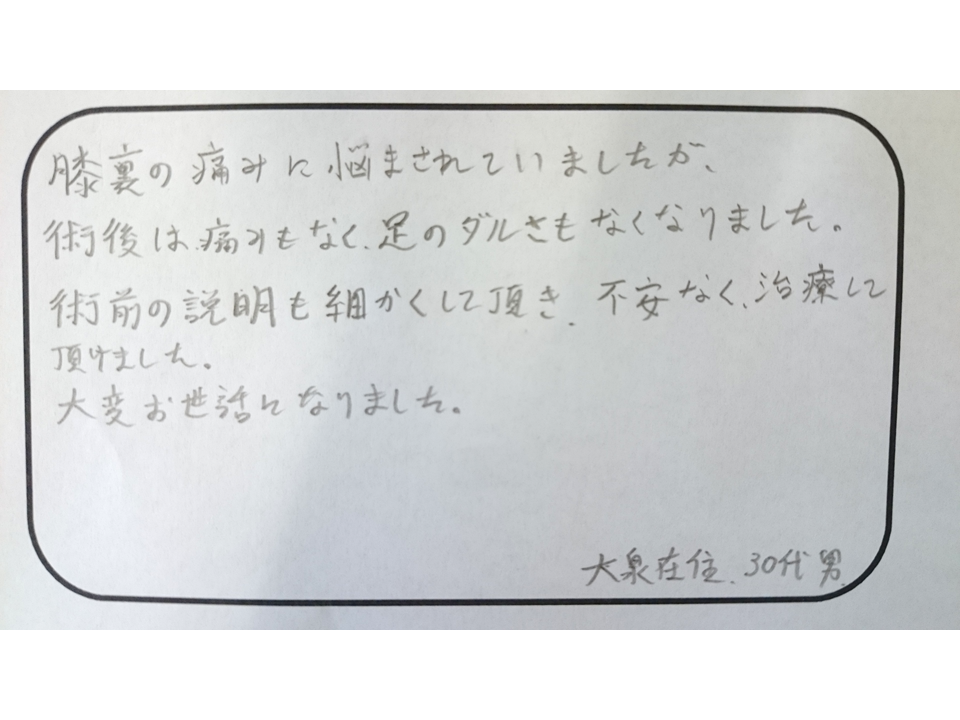 膝裏の痛みに悩まされていましたが、
術後は、痛みもなく、足のダルさもなくなりました。
術前の説明も細かくして頂き、不安なく、治療して
頂けました。
大変お世話になりました。
大泉在住、30代男